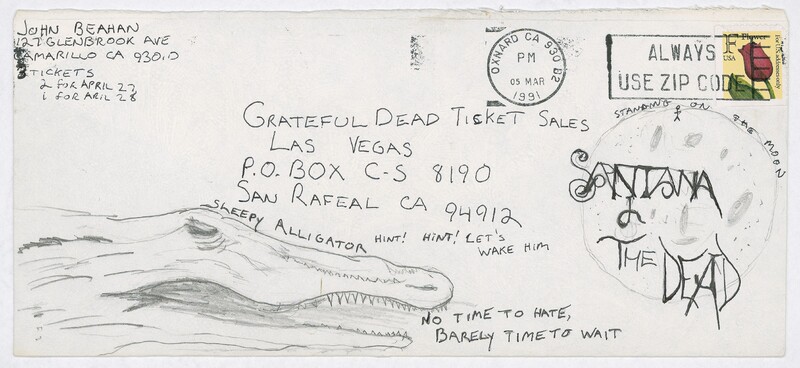 JOHN BEAHAN
127 GLENBROOK AVE
CAMARILLO CA 93010
3 TICKETS
2 FOR APRIL 27
1 FOR ARIL 28
OXNARD CA 930 B2
PM
05 MAR
1991
ALWAYS
USE ZIP CODE
F Flower
USA
For U.S. addresses only
GRATEFUL DEAD TICKET SALES
LAS VEGAS
P.O. BOX C-S 8190
SAN RAFEAL CA 94912
STANDING ON THE MOON
SANTANA
&
THE DEAD
SLEEPY ALLIGATOR HINT! HINT! LET'S
WAKE HIM
NO TIME TO HATE,
BARELY TIME TO WAIT